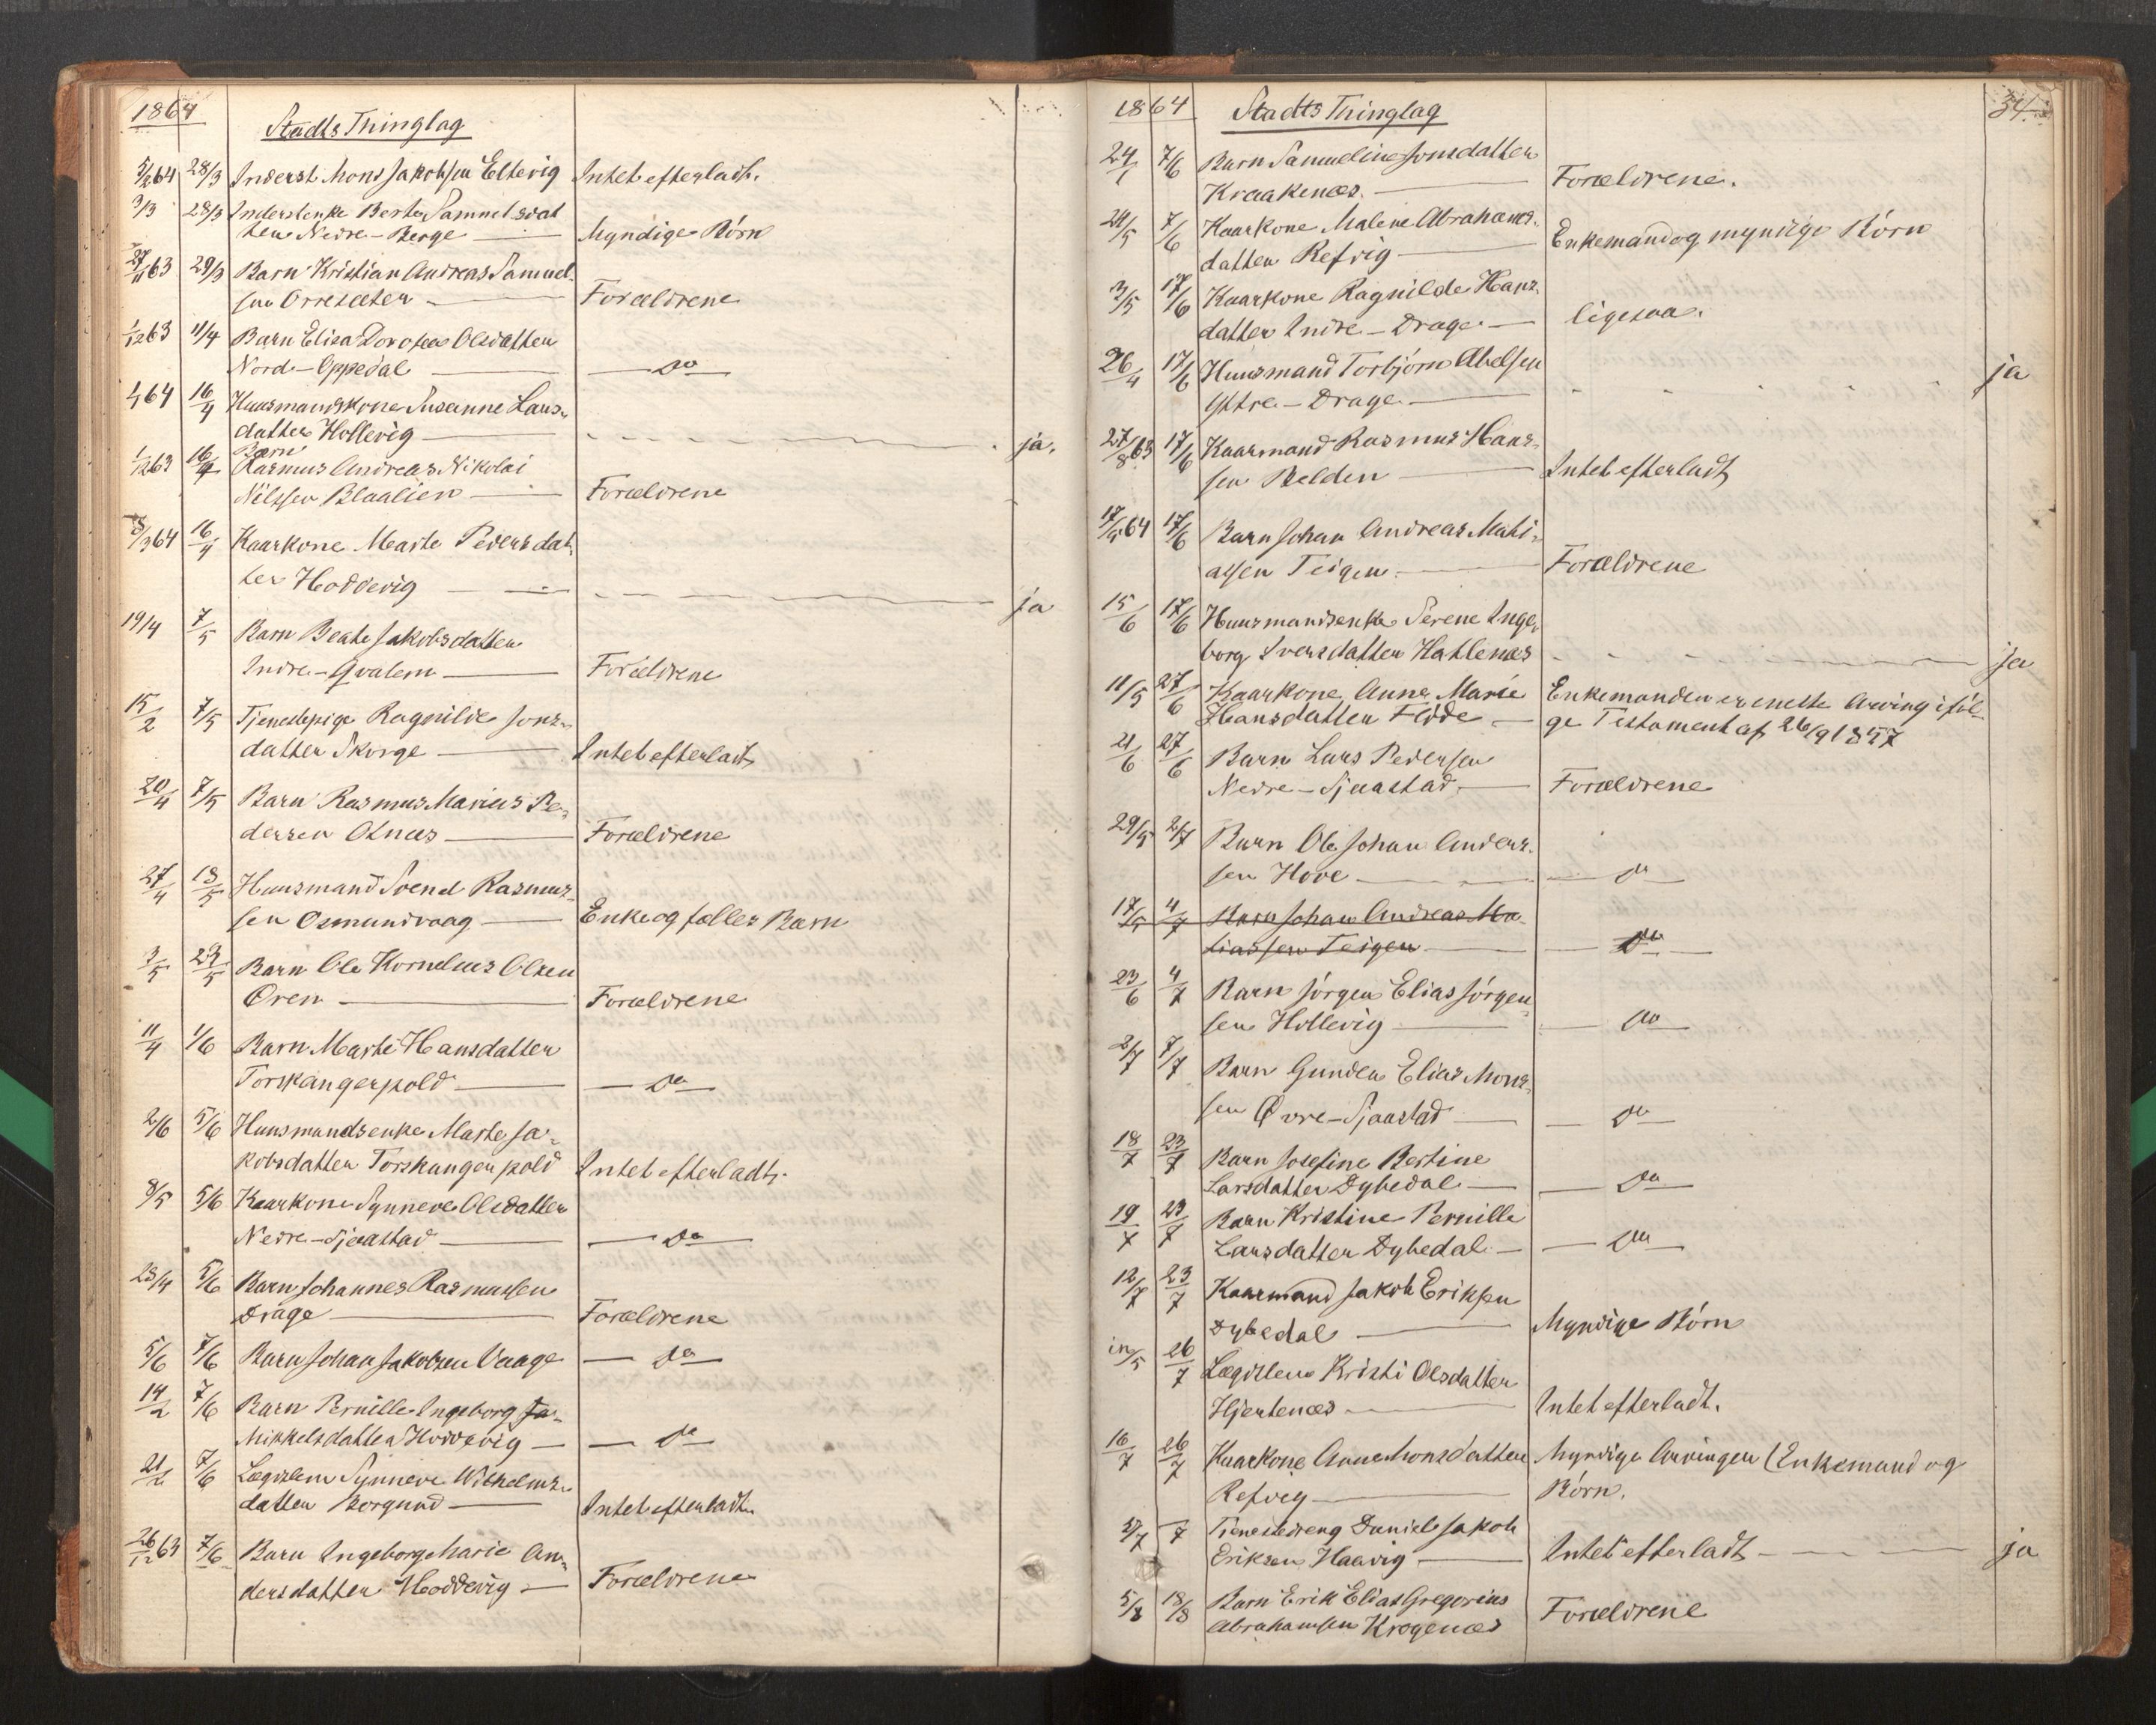 1864
Stadts Thinglag
5/2 64 28/3 Inderst Mons Jakobsen Eltevig Intet efterladt.
9/3 28/3 Inderstenke Berte Samuelsdat
ter Nedre-Berge — Myndige Børn
27/11 63 29/3 Barn Kristian Andreas Samuel-
sen Orresæter — Forældrene
1/12 63 11/4 Barn Elisa Dorotea Olsdatter
Nord-Oppedal — Do
1/4 64 16/4 Huusmandskone Susanne Lars-
datter Hollevig — ja.
1/12 63 16/4 Barn
Rasmus Andreas Nikolai
Nilssen Blaalien — Forældrene
8/3 64 16/4 Kaarkone Marte Pedersdat-
ter Hoddevig — ja
19/4 7/5 Barn Beate Jakobsdatter
Indre-Qvalem — Forældrene
15/2 7/5 Tjenestepige Ragnilde Jons-
datter Skorge — Intet efterladt
20/4 7/5 Barn Rasmus Marius Pe-
dersen Osnæs — Forældrene
27/4 18/5 Huusmand Svend Rasmus-
sen Osmundvaag — Enke og fælles Barn
3/5 29/5 Barn Ole Kornelius Olsen
Øren — Forældrene
11/4 1/6 Barn Marte Hansdatter
Torskangerpold — Do
2/6 5/6 Huusmandsenke Marte Ja-
kobsdatter Torskangerpold Intet efterladt.
8/5 5/6 Kaarkone Synneve Olsdatter
Nedre-Sjaastad — Do
23/4 5/6 Barn Johannes Rasmussen
Drage — Forældrene
5/6 7/6 Barn Johan Jakobsen Vaage — Do
14/2 7/6 Barn Pernille Ingeborg Ja-
Mikkelsdatter Hoddevig — Do
21/2 7/6 Lægdslem Synneve Wilhelms-
datter Borgund — Intet efterladt
26/12 63 7/6 Barn Ingeborg Marie An-
dersdatter Hoddevig — Forældrene
1864 Stadts Thinglag 34.
24/1 7/6 Barn Samueline Jonsdatter
Kraakenæs. — Forældrene.
24/5 7/6 Kaarkone Malene Abrahams-
datter Refvig — Enkemand og myndige Børn
3/5 17/6 Kaarkone Ragnilde Hans-
datter Indre-Drage — ligesaa.
26/4 17/6 Huusmand Torbjørn Abelsen
Yttre-Drage — ja
27/8 63 17/6 Kaarmand Rasmus Hans-
sen Belden — Intet efterladt
17/5 64 17/6 Barn Johan Andreas Mati-
assen Teigen. — Forældrene
15/6 17/6 Huusmandsenke Serene Inge-
borg Iversdatter Hatlenæs — ja
11/5 27/6 Kaarkone Anne Marie Enkemanden er eneste Arving iføl-
Hansdatter Fløde — ge Testament af 26/9 1857
21/6 27/6 Barn Lars Pedersen
Nedre-Sjaastad. — Forældrene
29/5 2/7 Barn Ole Johan Anders-
sen Hove — Do
17/5 4/7 Barn Johan Andreas Ma-
tiassen Teigen — Do
23/6 4/7 Barn Jørgen Elias Jørgen-
sen Hollevig — Do
2/7 7/7 Barn Gunder Elias Mons-
sen Øvre-Sjaastad — Do
18/7 23/7 Barn Josefine Bertine
Larsdatter Dybedal — Do
19/7 23/7 Barn Kristine Pernille
Larsdatter Dybedal — Do
12/7 23/7 Kaarmand Jakob Eriksen
Dybedal — Myndige Børn
in/5 26/7 Lægdslem Kristi Olsdatter
Hjertenæs — Intet efterladt.
16/7 26/7 Kaarkone Anne Monsdatter Myndige Arvinger (Enkemand og
Refvig — Børn.
27/7 7 Tjenestedreng Daniel Jakob
Eriksen Haavig — Intet efterladt — ja
5/8 18/8 Barn Erik Elias Gregorius
Abrahamsen Krogenæs Forældrene